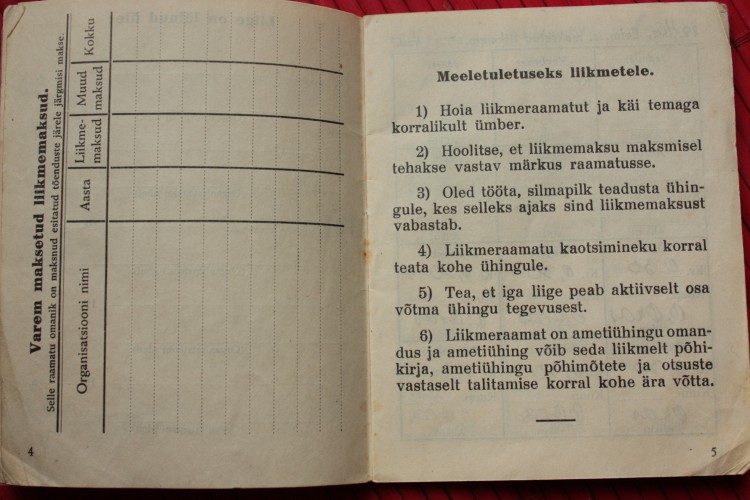 Varem maksetud liikmemaksud.
Selle raamatu omanik on maksnud esitatud tõenduste järele järgmisi makse.
Organisatsiooni nimi
Aasta
Liikme-
maksud
Muud
maksud
Kokku
4
Meeletuletuseks liikmetele.
1) Hoia liikmeraamatut ja käi temaga
korralikult ümber.
2) Hoolitse, et liikmemaksu maksmisel
tehakse vastav märkus raamatusse.
3) Oled tööta, silmapilk teadusta ühin-
gule, kes selleks ajaks sind liikmemaksust
vabastab.
4) Liikmeraamatu kaotsimineku korral
teata kohe ühingule.
5) Tea, et iga liige peab aktiivselt osa
võtma ühingu tegevusest.
6) Liikmeraamat on ametiühingu oman-
dus ja ametiühing võib seda liikmelt põhi-
kirja, ametiühingu põhimõtete ja otsuste
vastaselt talitamise korral kohe ära võtta.
5